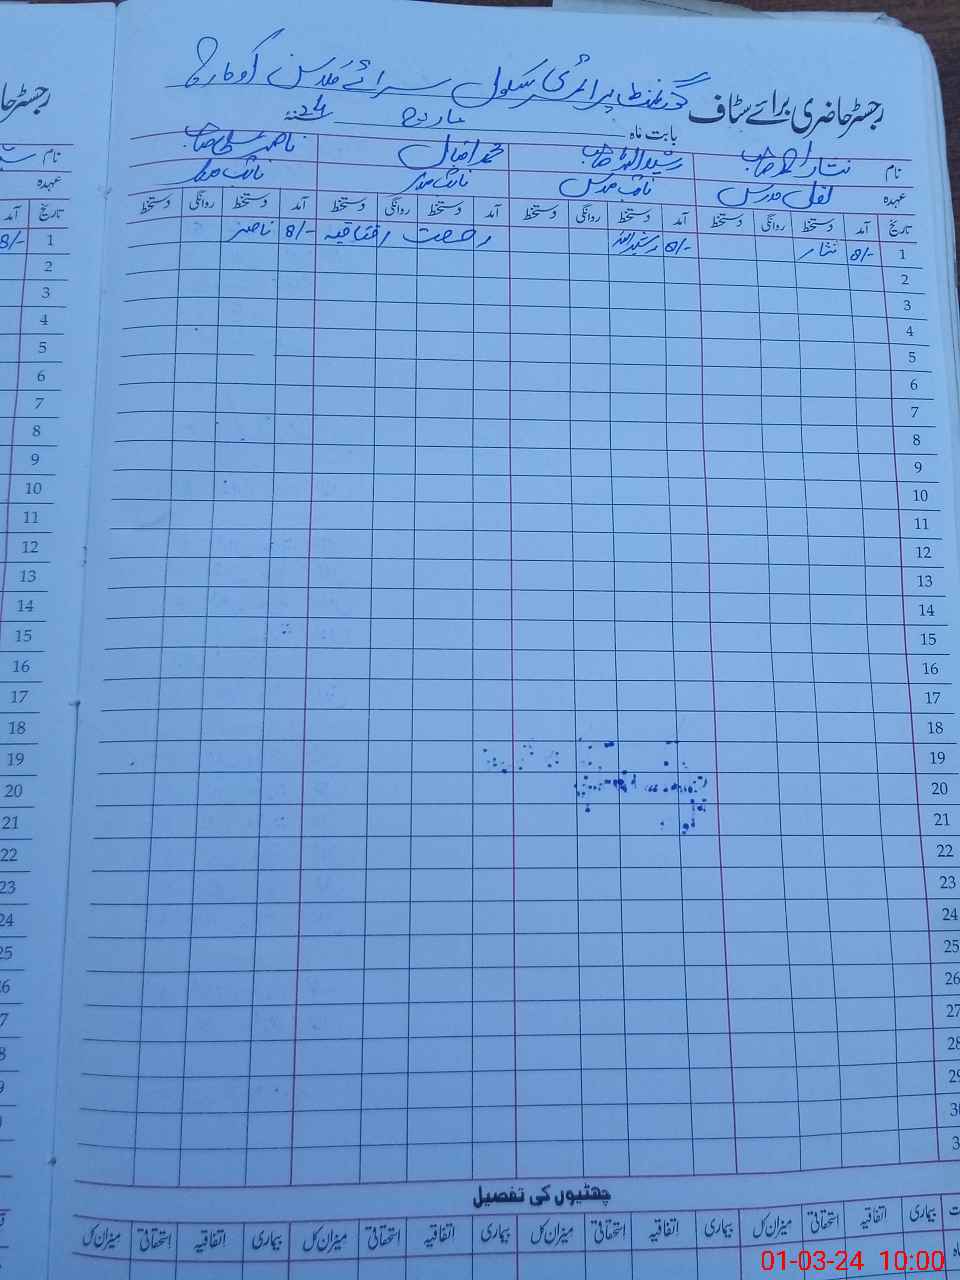 رجسٹر حاضری برائے سٹاف گورنمنٹ پرائمری سکول سرائے
بابت ماہ مارچ 24
نام نثار احمد صاحب رشید اللہ صاحب محمد اقبال ناصر علی صاحب
عہدہ مدرس نائب مدرس نائب مدرس نائب مدرس
تاریخ آمد دستخط روانگی دستخط آمد دستخط روانگی دستخط آمد دستخط روانگی دستخط آمد دستخط روانگی دستخط
1 8/- نثار 8/- رشید اللہ رخصت اتفاقیہ 8/- ناصر
2
3
4
5
6
7
8
9
10
11
12
13
14
15
16
17
18
19
20
21
22
23
24
25
26
27
28
29
30
چھٹیوں کی تفصیل
بیماری اتفاقیہ استحقاقی میزان کل بیماری اتفاقیہ استحقاقی میزان کل بیماری اتفاقیہ استحقاقی میزان کل بیماری اتفاقیہ استحقاقی میزان کل
رجسٹر حا
نام
عہدہ
تاریخ آمد
1 8/-
2
3
4
5
6
7
8
9
10
11
12
13
14
15
16
17
18
19
20
21
22
23
24
25
01-03-24 10:00